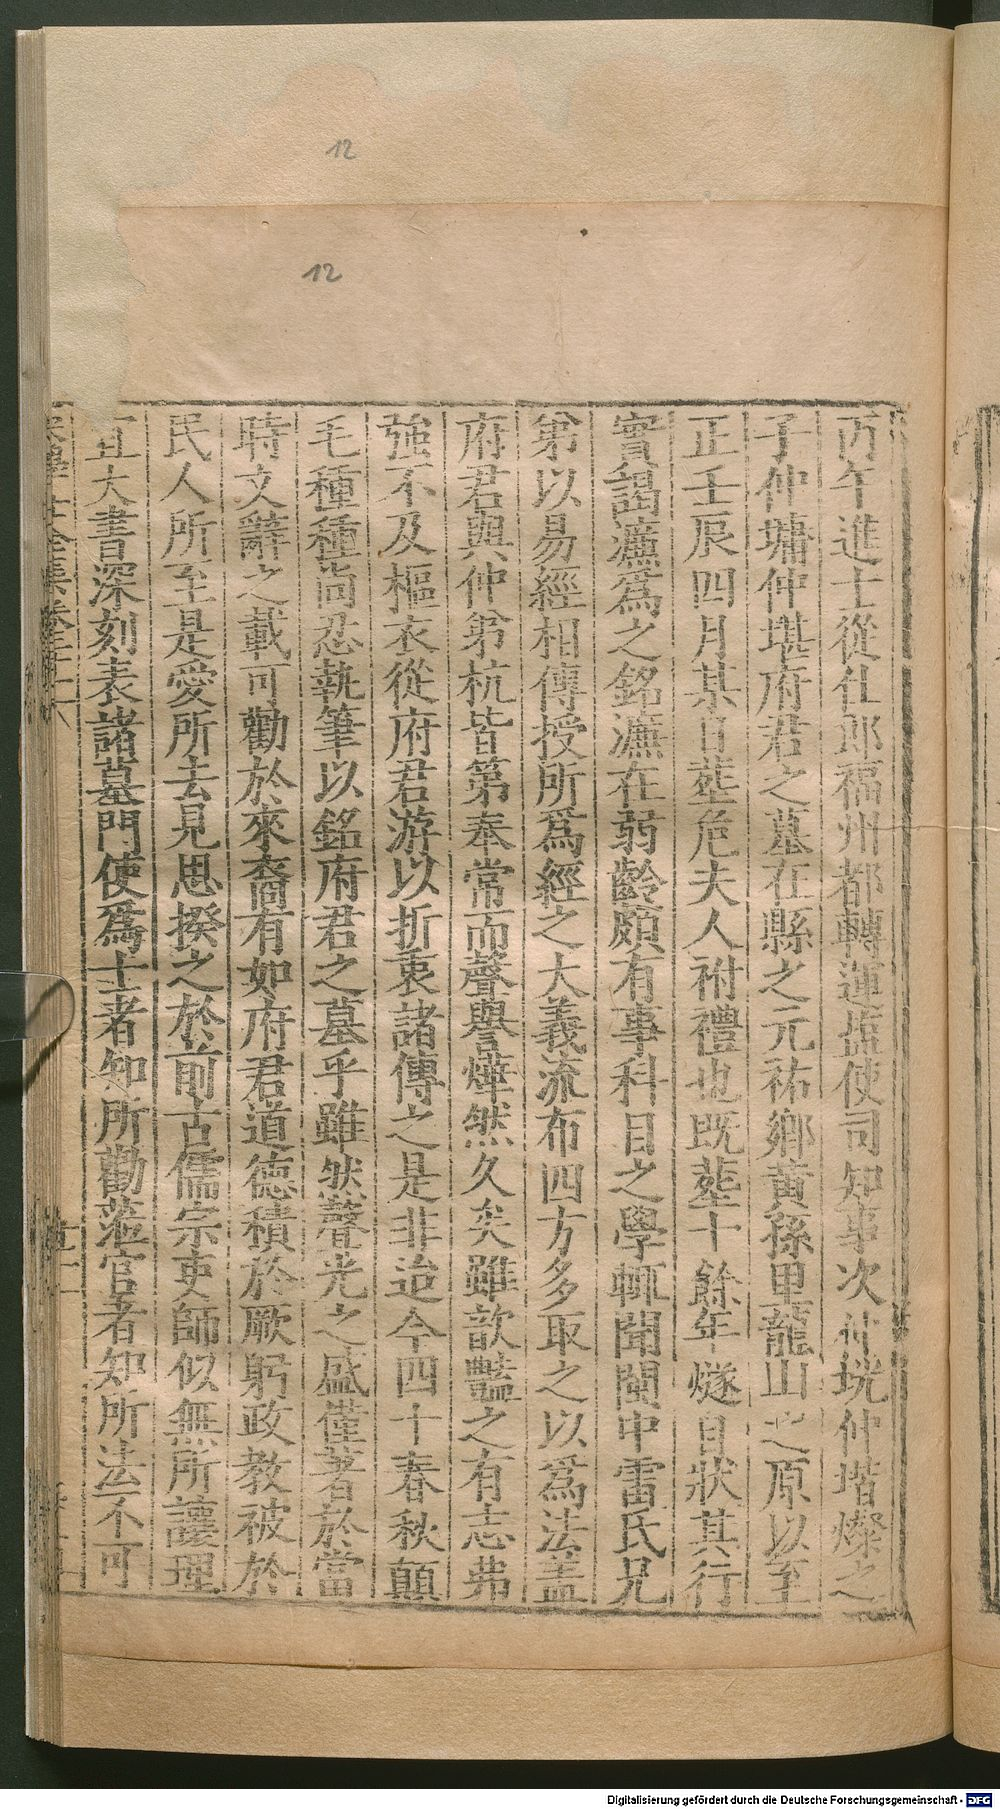 12
12
丙午進士從仕郎福州都轉運鹽使司知事次仲垙仲堦燦之
子仲墉仲堪府君之墓在縣之元祐鄉黃孫里蘢山之原以至
正壬辰四月某日塟危夫人祔禮也既塟十餘年燧自狀其行
實謁濂爲之銘濂在弱齡頗有事科目之學輒聞閩中雷氏兄
第以易經相傳授所爲經之大義流布四方多取之以爲法蓋
府君與仲弟杭皆第奉常而聲譽燁然久矣雖歆豔之有志弗
強不及樞衣從府君游以折衷諸傳之是非迨今四十春秋顛
毛種種尚忍執筆以銘府君之墓乎雖然聲光之盛僅著於當
時文辭之載可勸於來裔有如府君道德積於厥躬政教被於
民人所至是愛所去見思揆之於前古儒宗吏師似無所讓理
宜大書深刻表諸墓門使爲士者知所勸蒞官者知所法不可
Digitalisierung gefördert durch die Deutsche Forschungsgemeinschaft - DFG